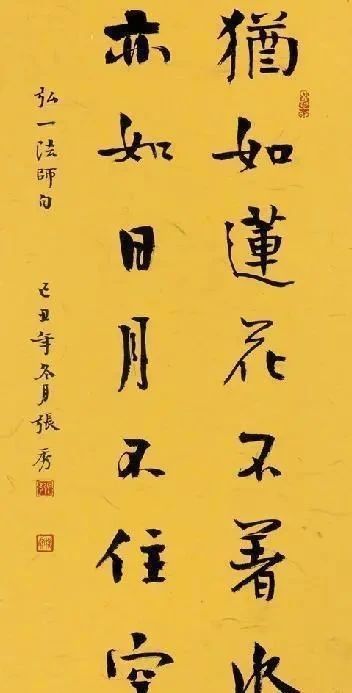 猶如蓮花不著水
亦如日月不住空
弘一法師句 己丑年冬月張秀